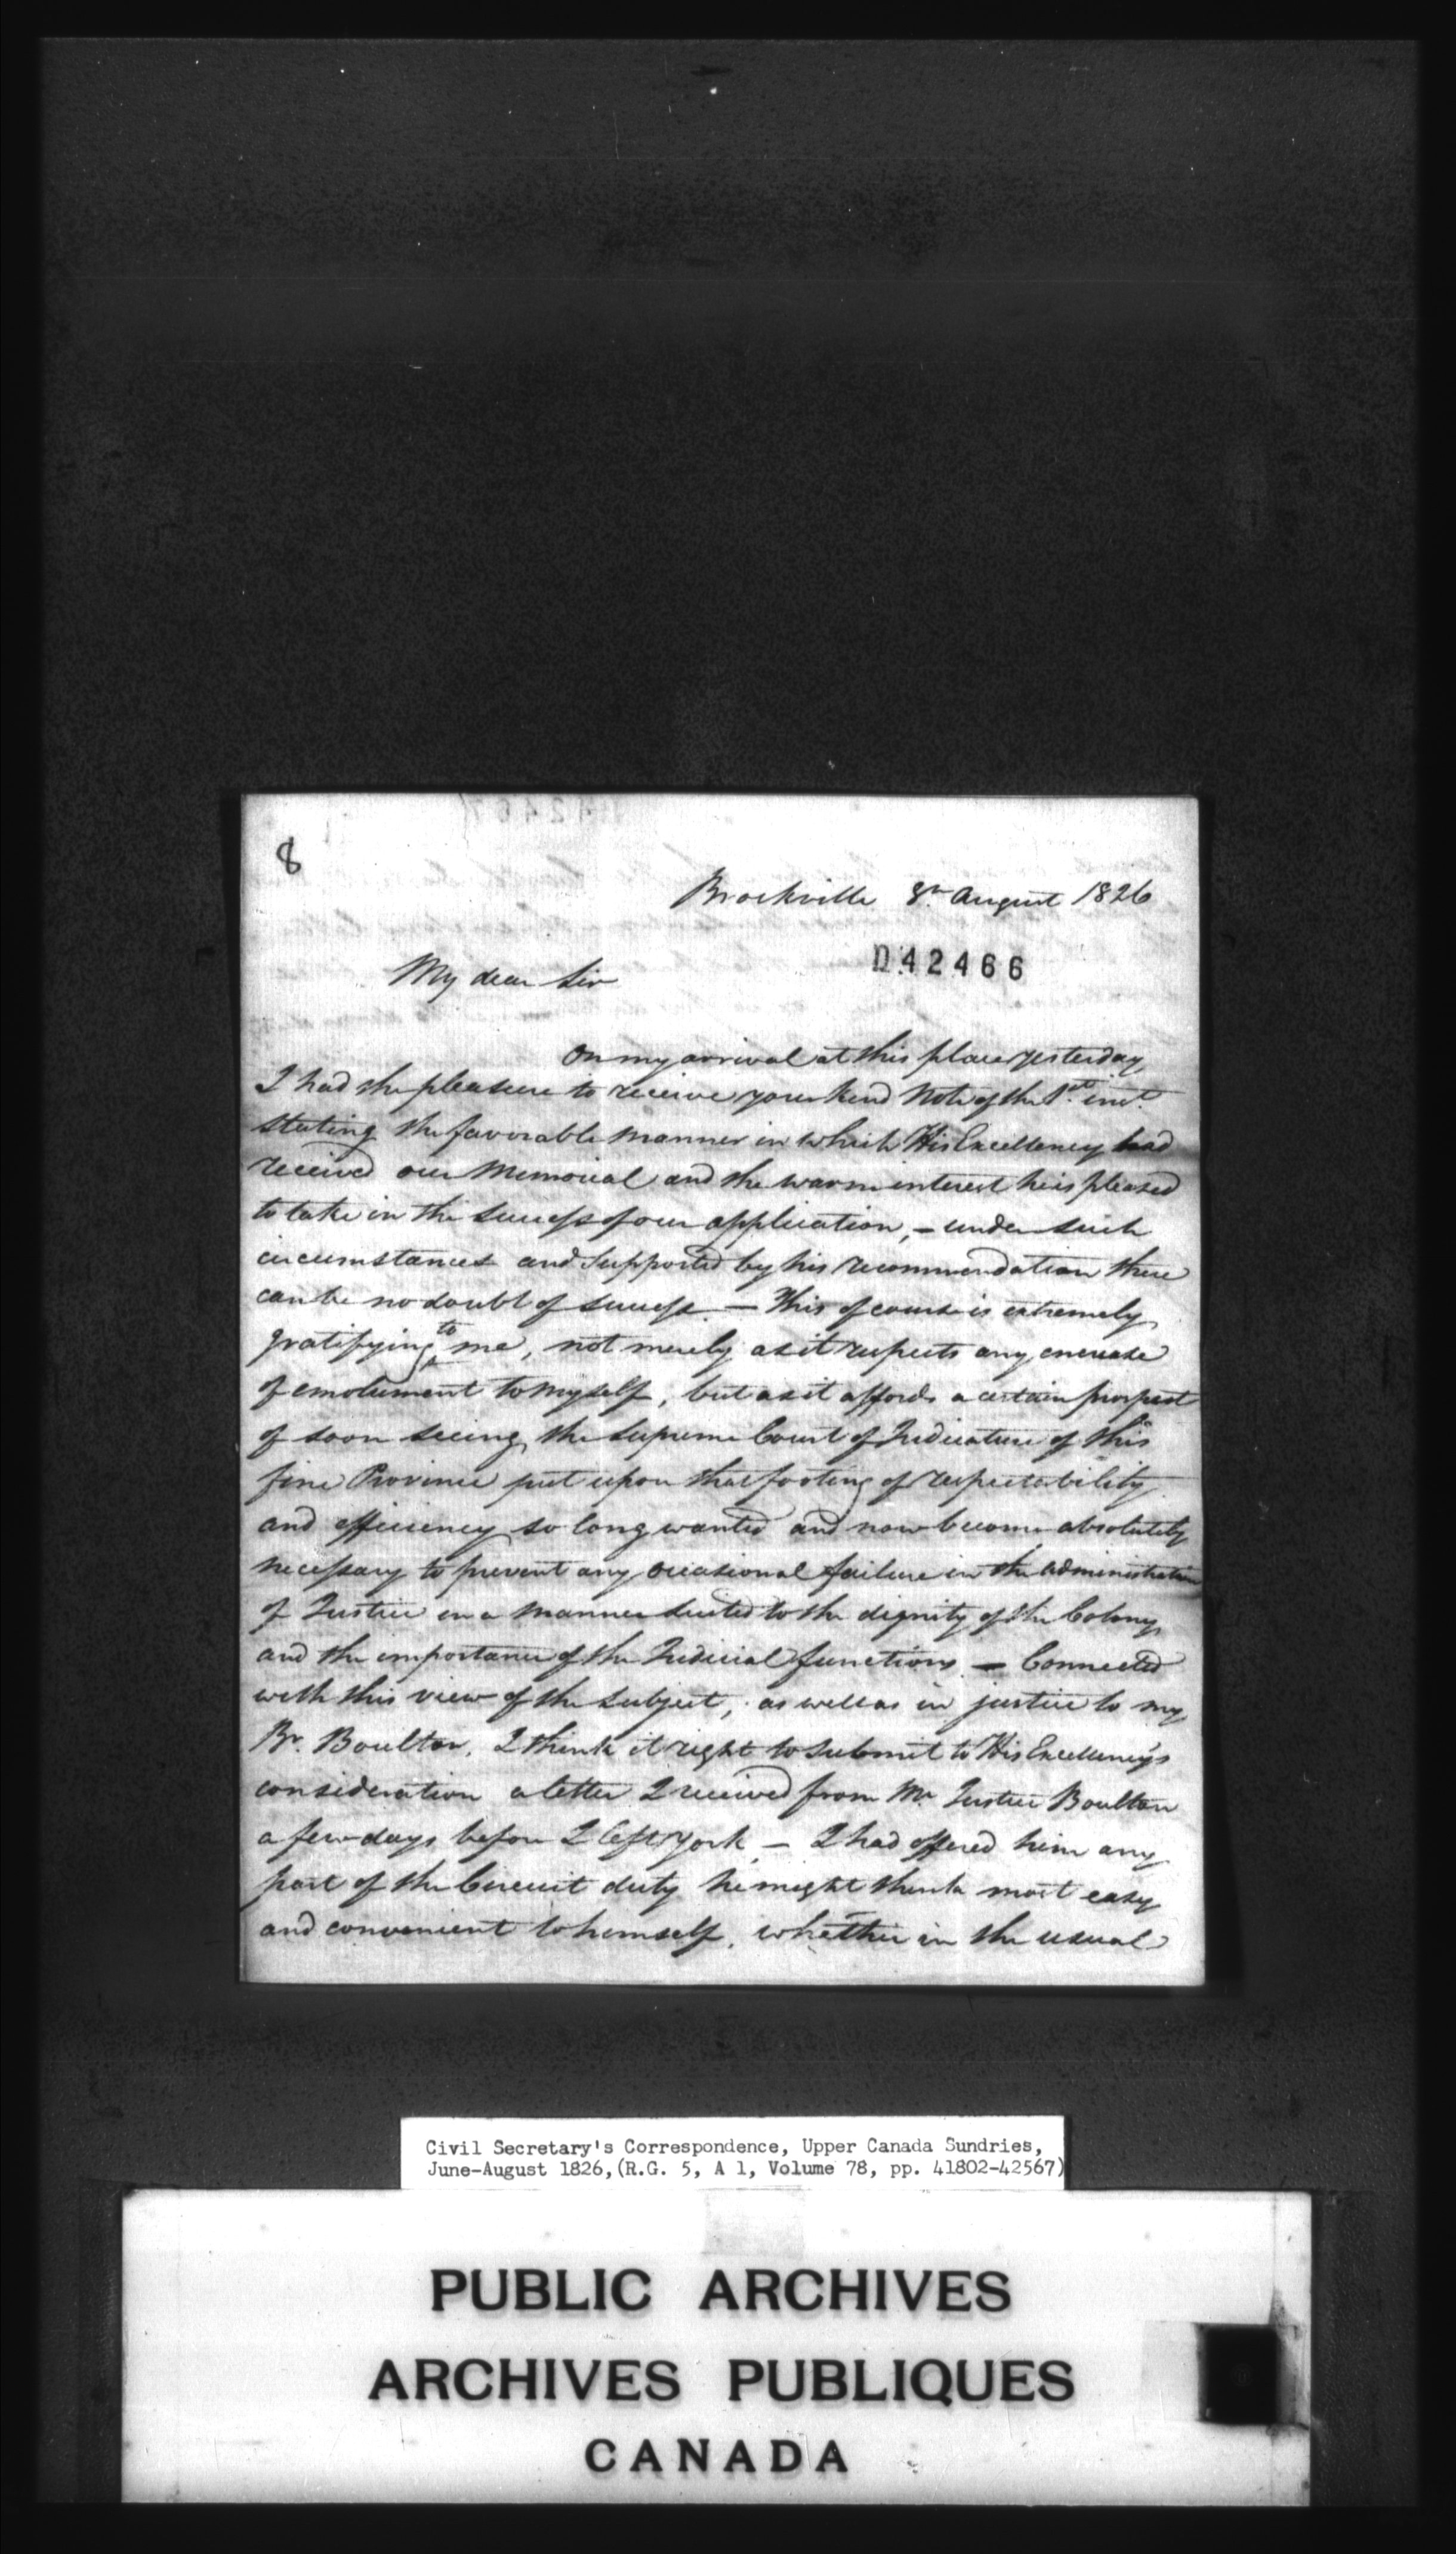 8
Brockville 8th August 1826
D42466
My dear Sir
On my arrival at this place yesterday,
I had the pleasure to receive your kind Note of the 1st inst.
stating the favorable manner in which His Excellency had
received our Memorial and the warm interest he is pleased
to take in the success of our application, – under such
circumstances and supported by his recommendation there
can be no doubt of success – This of course is extremely
gratifying to me, not merely as it respects any encrease
of emolument to myself, but as it affords a certain prospect
of soon seeing the supreme Court of Judicature of this
fine Province put upon that footing of respectability
and efficiency so long wanted and now become absolutely
necessary to prevent any occasional failure in the administration
of Justice in a manner suited to the dignity of the Colony
and the importance of the Judicial functions – Connected
with this view of the subject, as well as in justice to my
Br. Boulton, I think it right to submit to His Excellency's
consideration a letter I received from Mr Justice Boulton
a few days before I left York – I had offered him any
part of the Circuit duty he might think most easy
and convenient to himself, whether in the usual
Civil Secretary's Correspondence, Upper Canada Sundries,
June-August 1826,(R.G. 5, A 1, Volume 78, pp. 41802-42567)
PUBLIC ARCHIVES
ARCHIVES PUBLIQUES
CANADA